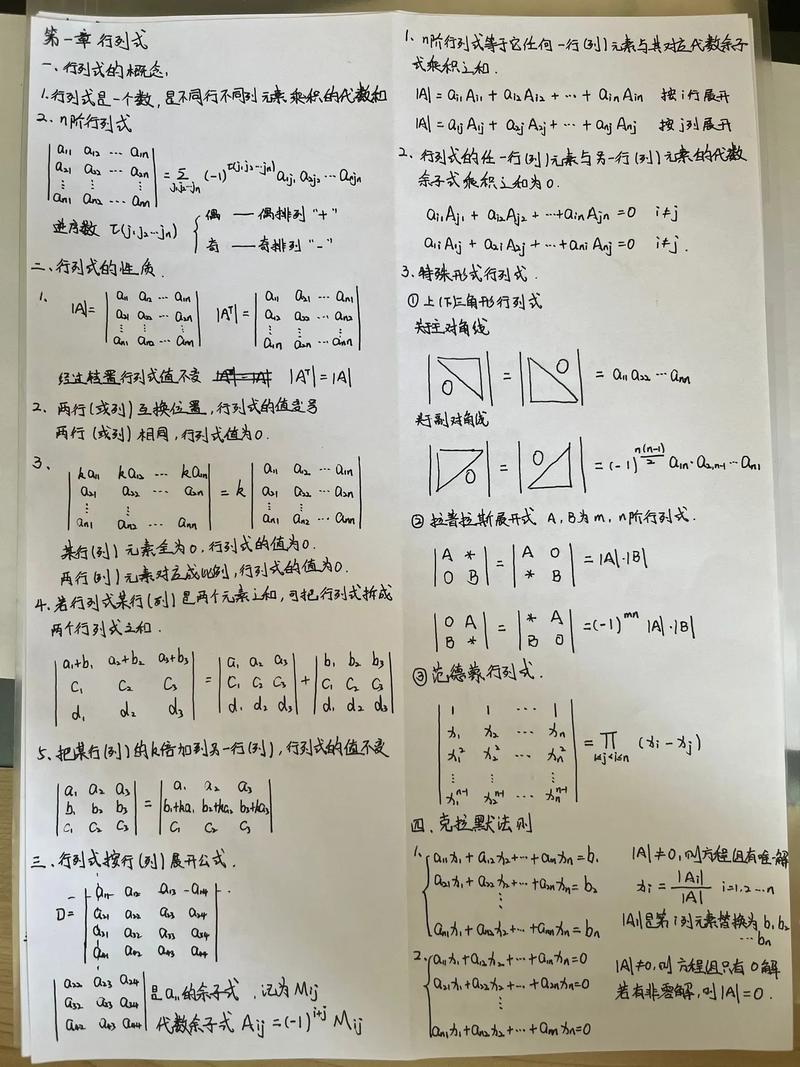 第一章 行列式
一、行列式的概念:
1.行列式是一个数,是不同行不同列元素乘积的代数和
2、n阶行列式
|a11 a12 ⋯ a1n|
|a21 a22 ⋯ a2n|
|⋮ ⋮ ⋮|
|an1 an2 ⋯ ann| = Σ j1j2⋯jn (-1)^τ(j1j2⋯jn) a1j1 a2j2 ⋯ anjn
逆序数 τ(j1j2⋯jn) { 偶 — 偶排列 "+"
奇 — 奇排列 "-"
二、行列式的性质.
1、 |A| = |a11 a12 ⋯ a1n| |A^T| = |a11 a21 ⋯ an1|
|a21 a22 ⋯ a2n| |a12 a22 ⋯ an2|
|⋮ ⋮ ⋮| |⋮ ⋮ ⋮|
|an1 an2 ⋯ ann| |a1n a2n ⋯ ann|
经过转置行列式值不变 |A^T|=|A|
2、两行(或列)互换位置,行列式的值变号
两行(或列)相同,行列式值为0.
3、 |ka11 ka12 ⋯ ka1n| |a11 a12 ⋯ a1n|
|a21 a22 ⋯ a2n| = k |a21 a22 ⋯ a2n|
|⋮ | |⋮ ⋮ ⋮|
|an1 an2 ⋯ ann| |an1 an2 ⋯ ann|
某行(列)元素全为0,行列式的值为0.
两行(列)元素对应成比例,行列式的值为0.
4、若行列式某行(列)是两个元素之和,可把行列式拆成
两个行列式之和.
|a1+b1 a2+b2 a3+b3| |a1 a2 a3| |b1 b2 b3|
|c1 c2 c3| = |c1 c2 c3| + |c1 c2 c3|
|d1 d2 d3| |d1 d2 d3| |d1 d2 d3|
5、把某行(列)的k倍加到另一行(列),行列式的值不变
|a1 a2 a3| |a1 a2 a3|
|b1 b2 b3| = |b1+ka1 b2+ka2 b3+ka3|
|c1 c2 c3| |c1 c2 c3|
三、行列式按行(列)展开公式.
D = |a11 a12 a13 a14|
|a21 a22 a23 a24|
|a31 a32 a33 a34|
|a41 a42 a43 a44|
|a22 a23 a24|
|a32 a33 a34| 是a11的余子式,记为Mij
|a42 a43 a44| 代数余子式 Aij=(-1)^i+j Mij
1、n阶行列式等于它任何一行(列)元素与其对应代数余子
式乘积之和.
|A| = ai1Ai1 + ai2Ai2 + ⋯ + ainAin 按i行展开
|A| = a1jA1j + a2jA2j + ⋯ + anjAnj 按j列展开
2、行列式的任一行(列)元素与另一行(列)元素的代数
余子式乘积之和为0.
ai1Aj1 + ai2Aj2 + ⋯ + ainAjn = 0 i≠j
a1iA1j + a2iA2j + ⋯ + aniAnj = 0 i≠j.
3、特殊形式行列式.
①上(下)三角形行列式
关于主对角线
|0| = |0| = a11a22⋯ann
关于副对角线
|0| = |0| = (-1)^n(n-1)/2 a1n·a2,n-1⋯an1
②拉普拉斯展开式 A,B为m,n阶行列式.
|A *| = |A 0| = |A|·|B|
|0 B| |* B|
|0 A| = |* A| = (-1)^mn |A|·|B|
|B *| |B 0|
③范德蒙行列式.
|1 1 ⋯ 1|
|x1 x2 ⋯ xn|
|x1^2 x2^2 ⋯ xn^2| = ∏ 1≤j<i≤n (xi-xj)
|⋮ ⋮ ⋮|
|x1^n-1 x2^n-1 ⋯ xn^n-1|
四、克拉默法则
1、{ a11x1+a12x2+⋯+a1nxn=b1 |A|≠0,则方程组有唯一解
a21x1+a22x2+⋯+a2nxn=b2 xi=|Ai|/|A| i=1,2⋯n
⋮
an1x1+an2x2+⋯+annxn=bn |Ai|是第i列元素替换为b1,b2
⋯bn
2、{ a11x1+a12x2+⋯+a1nxn=0 |A|≠0,则方程组只有0解
a21x1+a22x2+⋯+a2nxn=0 若有非零解,则|A|=0.
⋮
an1x1+an2x2+⋯+annxn=0